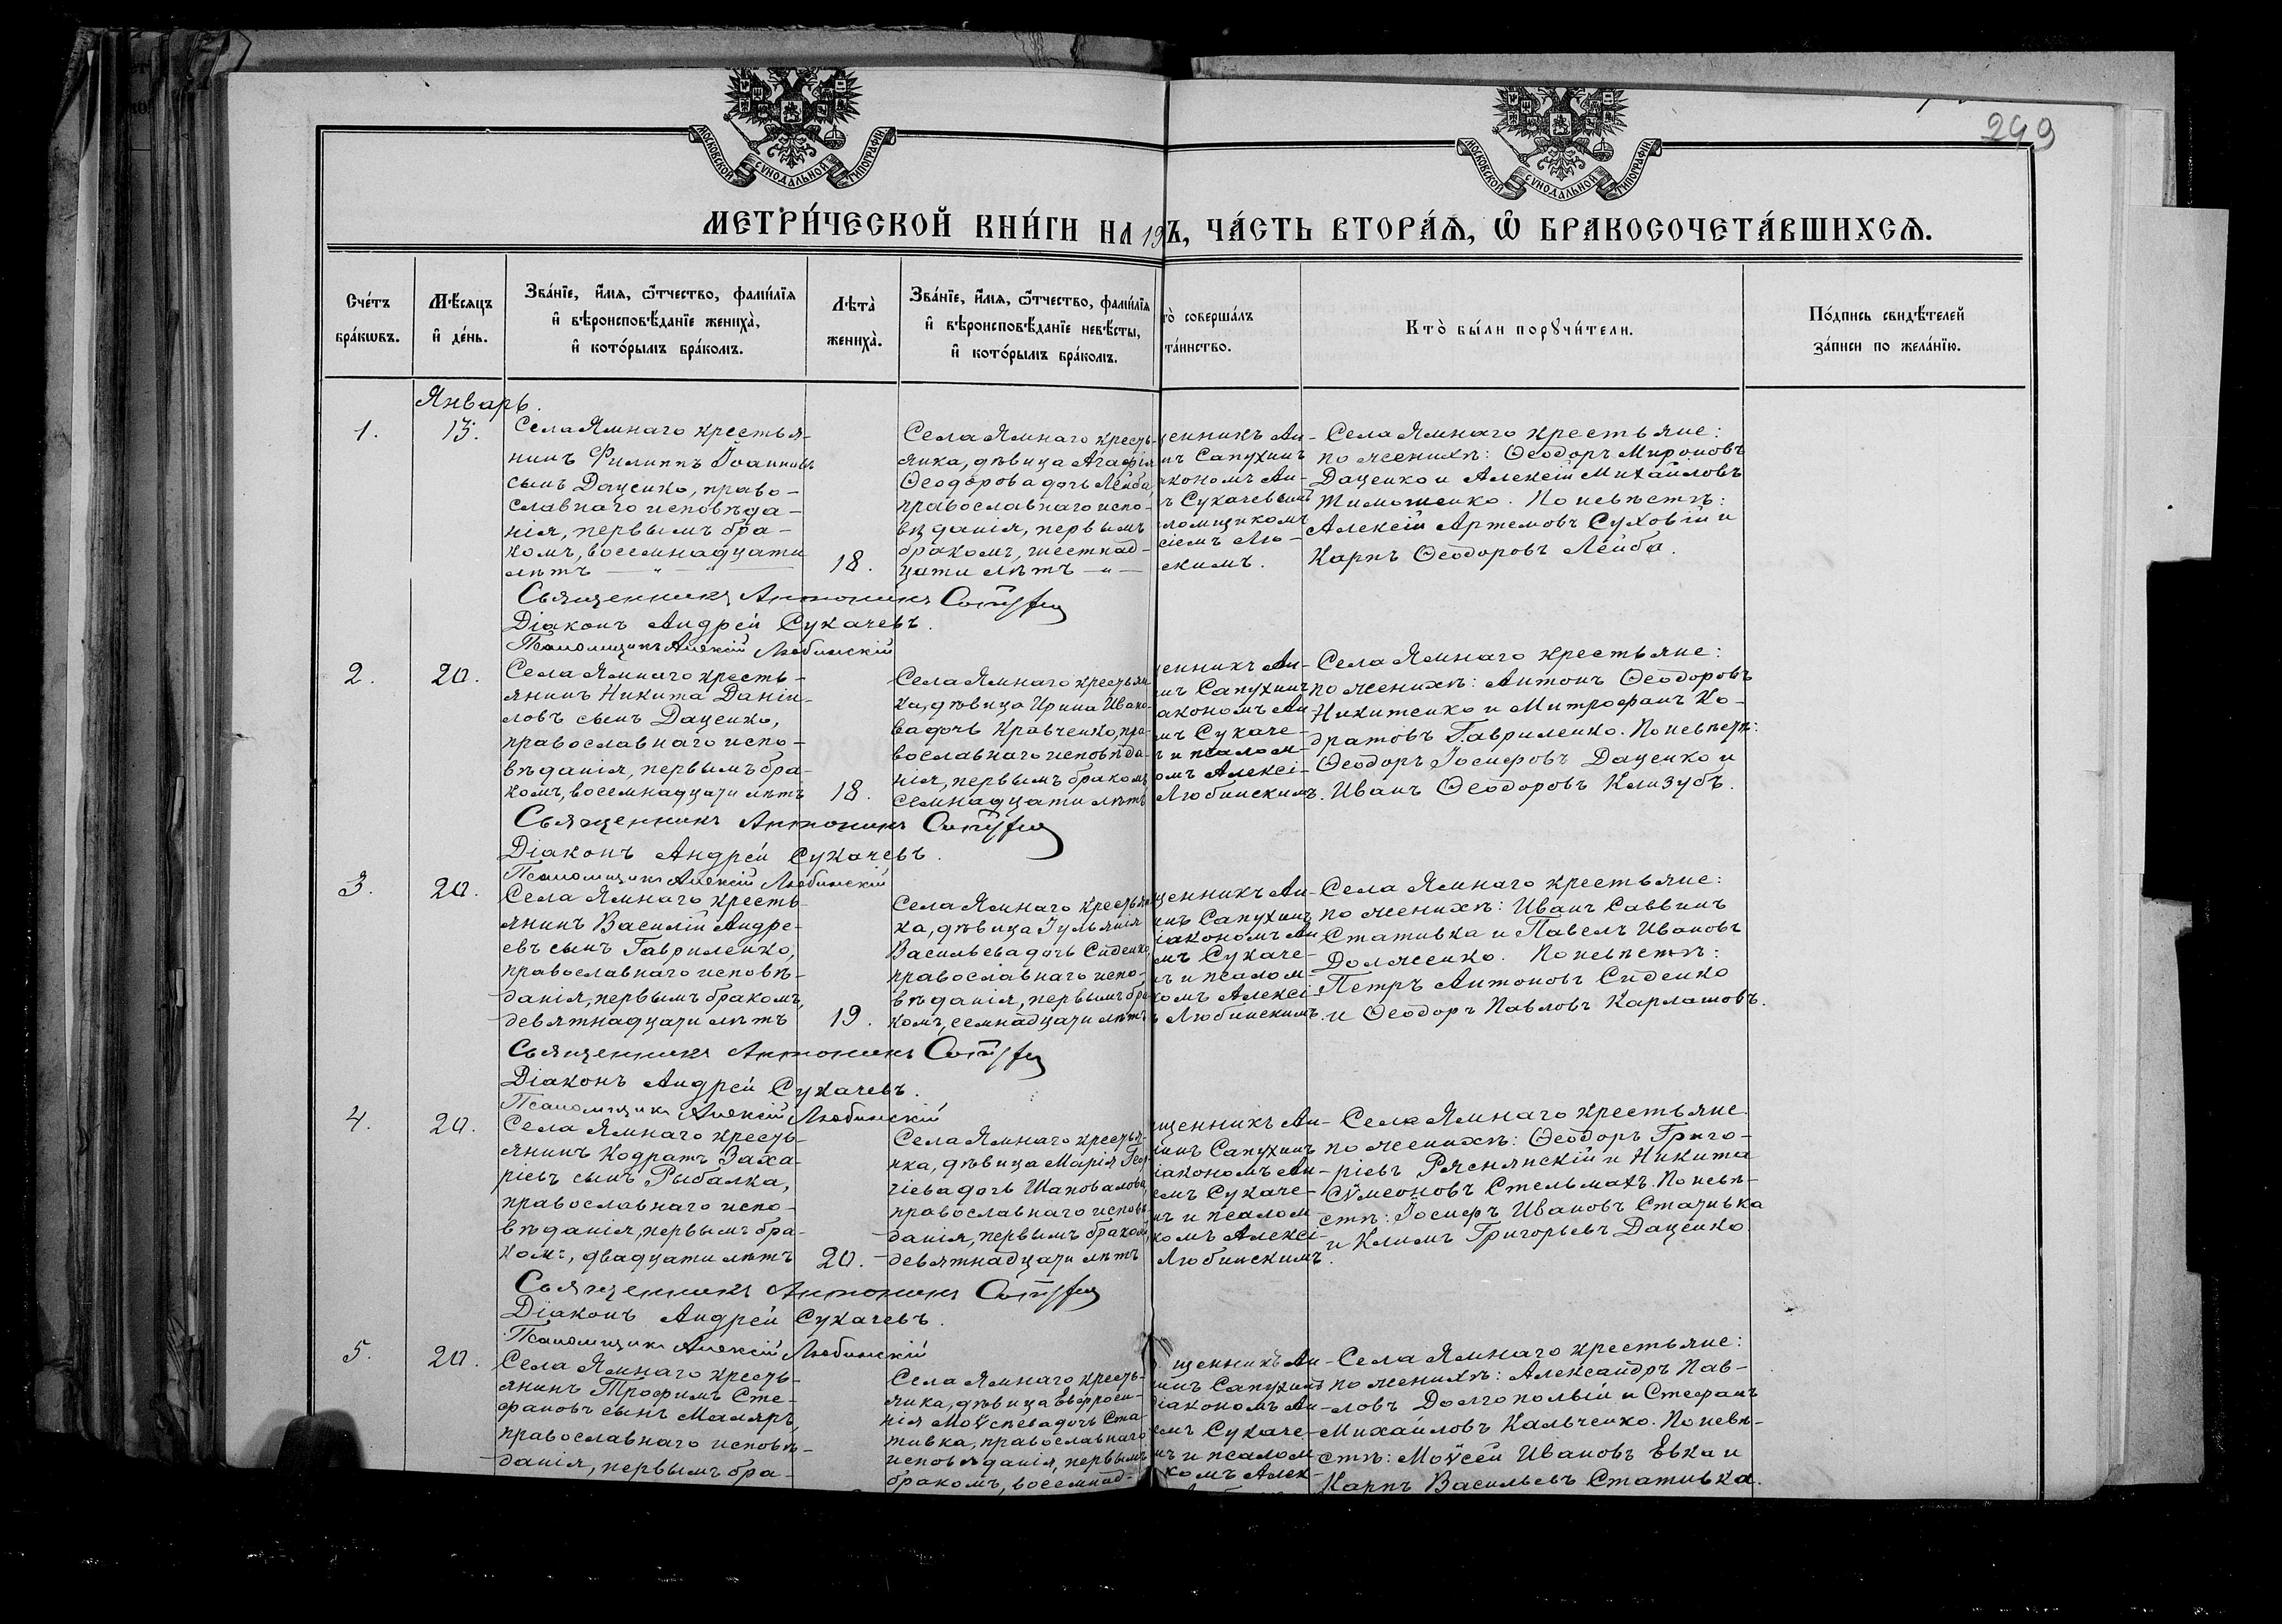 МОСКОВСКОЙ СѴНОДАЛЬНОЙ ТИПОГРАФІИ
МОСКОВСКОЙ СѴНОДАЛЬНОЙ ТИПОГРАФІИ
299
МЕТРИ́ЧЕСКОЙ КНИ́ГИ НА 19 Ъ, ЧА́СТЬ ВТОРА́Ѧ, Ѽ БРАКОСОЧЕТА́ВШИХСѦ.
Сче́тъ
бра́кѡвъ.
Мѣ́сѧцъ
и҆ де́нь.
Зва́нїе, и҆́мѧ, ѻ҆́тчество, фами́лїѧ
и҆ вѣроисповѣ́данїе жениха̀,
и҆ кото́рымъ бра́комъ.
Лѣта̀
жениха̀.
Зва́нїе, и҆́мѧ, ѻ҆́тчество, фами́лїѧ
и҆ вѣроисповѣ́данїе невѣ́сты,
и҆ кото́рымъ бра́комъ.
то̀ соверша́лъ
та́инство.
Кто̀ бы́ли порꙋчи́тели.
По́дпись свидѣ́телей
за́писи по жела́нїю.
Январь.
1.
13.
Села Ямнаго крестья-
нинъ Филиппъ Іоанновъ
сынъ Даценко, право-
славнаго исповѣда-
нія, первымъ бра-
комъ, восемнадцати
лѣтъ — " — " —
18.
Села Ямнаго кресть-
янка, дѣвица Агафія
Ѳеодорова дочь Лейба,
православнаго испо-
вѣданія, первымъ
бракомъ, шестнад-
цати лѣтъ — " —
щенникъ Ан-
нъ Сапухинъ
акономъ Ан-
ъ Сукачевымъ
ломщикомъ
сіемъ Лю-
скимъ.
Села Ямнаго крестьяне:
по женихѣ: Ѳеодоръ Мироновъ
Даценко и Алексій Михайловъ
Тимошенко. По невѣстѣ:
Алексій Артемовъ Суховій и
Карпъ Ѳеодоровъ Лейба.
Священникъ Антонинъ
Діаконъ Андрей Сукачевъ.
Псаломщикъ Алексій Любинскій
2.
20.
Села Ямнаго кресть-
янинъ Никита Даніи-
ловъ сынъ Даценко,
православнаго испо-
вѣданія, первымъ бра-
комъ, восемнадцати лѣтъ
18.
Села Ямнаго крестьян
ка, дѣвица Ирина Ивано-
ва дочь Кравченко, пра-
вославнаго исповѣда-
нія, первымъ бракомъ
семнадцати лѣтъ
щенникъ Ан-
нъ Сапухинъ
акономъ Ан
мъ Сукаче-
ъ и псалом-
омъ Алексі-
Любинскимъ.
Села Ямнаго крестьяне:
по женихѣ: Антонъ Ѳеодоровъ
Никитенко и Митрофанъ Ко-
дратовъ Гавриленко. По невѣстѣ:
Ѳеодоръ Іосифовъ Даценко и
Иванъ Ѳеодоровъ Клизубъ.
Священникъ Антонинъ
Діаконъ Андрей Сукачевъ.
Псаломщикъ Алексій Любинскій
3.
20.
Села Ямнаго кресть-
янинъ Василій Андре-
евъ сынъ Гавриленко,
православнаго исповѣ-
данія, первымъ бракомъ,
девятнадцати лѣтъ
19.
Села Ямнаго крестьян
ка, дѣвица Іульянія
Васильева дочь Сиденко,
православнаго испо-
вѣданія, первымъ бра-
комъ, семнадцати лѣтъ
щенникъ Ан-
инъ Сапухинъ
іакономъ Ан
мъ Сукаче-
ъ и псалом-
комъ Алексі-
ъ Любинскимъ.
Села Ямнаго крестьяне:
по женихѣ: Иванъ Саввинъ
Стативка и Павелъ Ивановъ
Долженко. По невѣстѣ:
Петръ Антоновъ Сиденко
и Ѳеодоръ Павловъ Карлашовъ.
Священникъ Антонинъ
Діаконъ Андрей Сукачевъ.
Псаломщикъ Алексій Любинскій
4.
20.
Села Ямнаго кресть-
янинъ Кодратъ Заха-
ріевъ сынъ Рыбалка,
православнаго испо-
вѣданія, первымъ бра-
комъ, двадцати лѣтъ
20.
Села Ямнаго крестья-
нка, дѣвица Марія Геор-
гіева дочь Шаповалова,
православнаго исповѣ-
данія, первымъ бракомъ,
девятнадцати лѣтъ
щенникъ Ан-
нинъ Сапухинъ
іакономъ Ан-
емъ Сукаче-
ъ и псалом-
комъ Алексі-
Любинскимъ.
Села Ямнаго крестьяне
по женихѣ: Ѳеодоръ Григо-
ріевъ Ряснянскій и Никита
Сѵмеоновъ Стельмахъ. По невѣ-
стѣ: Іосифъ Ивановъ Стативка
и Климъ Григорьевъ Даценко
Священникъ Антонинъ
Діаконъ Андрей Сукачевъ.
Псаломщикъ Алексій Любинскій
5.
20.
Села Ямнаго кресть-
янинъ Трофимъ Сте-
фановъ сынъ Маляръ,
православнаго исповѣ-
данія, первымъ бра-
Села Ямнаго кресть-
янка, дѣвица Евфроси-
нія Моѵсеева дочь Ста-
тивка, православнаго
исповѣданія, первымъ
бракомъ, восемнад-
щенникъ Ан-
нинъ Сапухинъ
діакономъ Ан-
емъ Сукаче-
ъ и псалом-
комъ Алек-
Села Ямнаго крестьяне:
по женихѣ: Александръ Пав-
ловъ Долгополый и Стефанъ
Михайловъ Кальченко. По невѣ-
стѣ: Моѵсей Ивановъ Евка и
Карпъ Васильевъ Стативка.